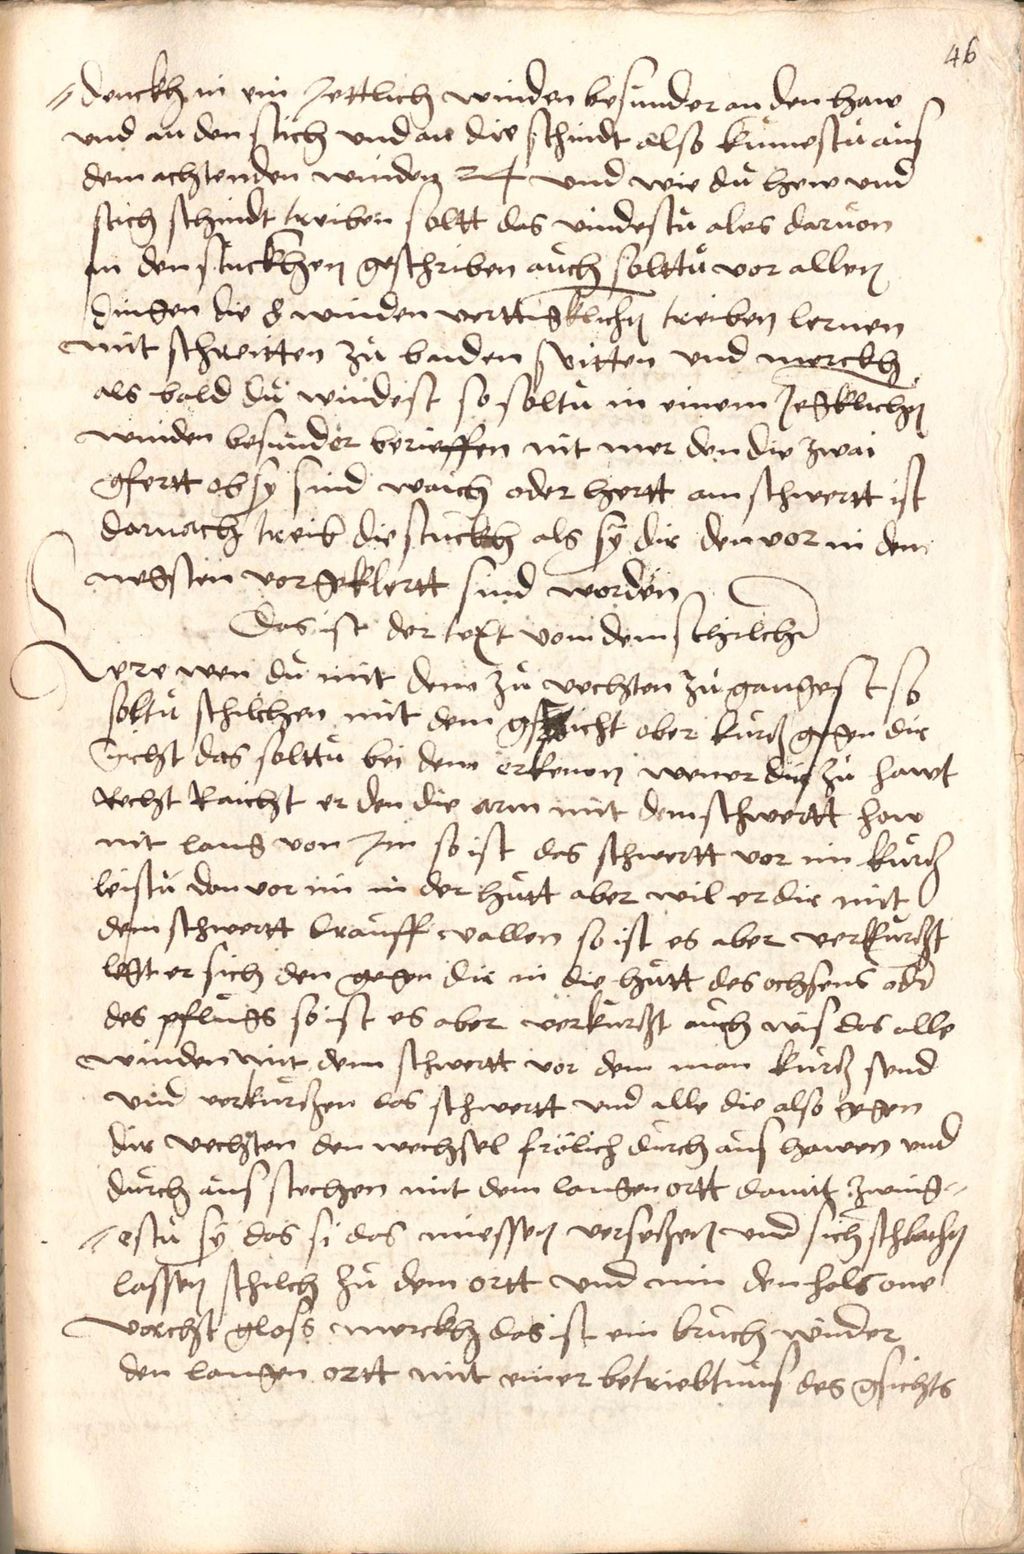 46
denckh in ein yettlich winden besunder an den haw
und an den stich und an die schindt also kumestu aus
dem achtenden winden 24 und wie du hew und
stich schindt treiben soltt das vindestu ales daruon
in den stuckhen geschriben auch solttu vor allen
dingen die 8 winden verttigklichen treiben lernen
mit schreitten zu baiden seitten und merckh
als bald du windest so soltu in einem yegklichen
winden besunder berieffen nit mer den die zwai
gfertt ob sy sind waich oder hertt am schwertt ist
darnach treib die stuckh als sy dir den vor in dem
negsten vor geklertt sind worden
Das ist der text vom dem schilchen
Mere wen du mit dem zu vechten zu gangest so
soltu schilchen mit dem gesicht ober kurtz gegen dir
Sicht das solttu bei dem erkenen wener dir zu hawt
Recht Raicht er den die arm mit dem schwertt how
nit lang von im so ist das schwertt vor im kurtz
leistu dan vor im in der hutt aber wil er dir mit
dem schwertt drauff vallen so ist es aber verkurtzt
legt er sich den gegen dir in die hutt des ochsens oder
des pflugs so ist es aber verkurtzt auch wis das alle
winden mit dem schwertt vor dem man kurtz send
und verkurtzen das schwertt und alle die also gegen
dir vechten den wechsel frölich durch aus hawen und
durch aus stechen mit dem langen ortt damit zwing=
=estu sy das si das miessen versetzen und sich schlachen
lassen schilch zu dem ortt und nim den hals one
vorcht gloss merckh das ist ein bruch winder
den langen ortt mit einer betriebtnus des gsichts